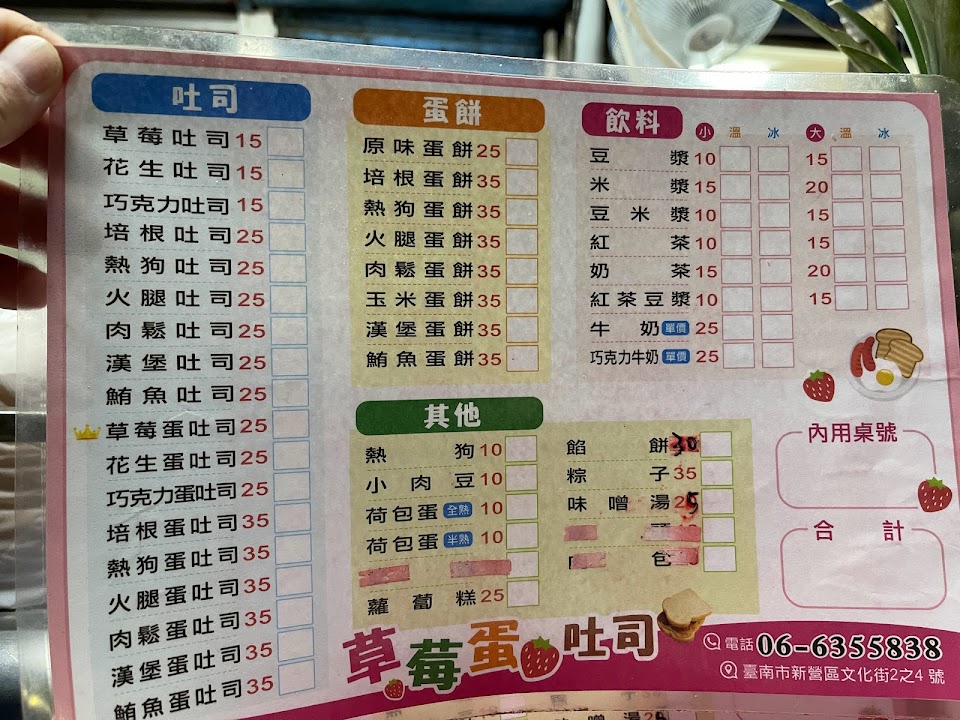 吐司
草莓吐司 15
花生吐司 15
巧克力吐司 15
培根吐司 25
熱狗吐司 25
火腿吐司 25
肉鬆吐司 25
漢堡吐司 25
鮪魚吐司 25
草莓蛋吐司 25
花生蛋吐司 25
巧克力蛋吐司 25
培根蛋吐司 35
熱狗蛋吐司 35
火腿蛋吐司 35
肉鬆蛋吐司 35
漢堡蛋吐司 35
鮪魚蛋吐司 35
蛋餅
原味蛋餅 25
培根蛋餅 35
熱狗蛋餅 35
火腿蛋餅 35
肉鬆蛋餅 35
玉米蛋餅 35
漢堡蛋餅 35
鮪魚蛋餅 35
飲料 小 溫 冰 大 溫 冰
豆漿 10 15
米漿 15 20
豆米漿 10 15
紅茶 10 15
奶茶 15 20
紅茶豆漿 10 15
牛奶 單價 25
巧克力牛奶 單價 25
其他
熱狗 10
小肉豆 10
荷包蛋 全熟 10
荷包蛋 半熟 10
蘿蔔糕 25
餡餅 30
粽子 35
味噌湯 25
包
內用桌號
合計
草莓蛋吐司
電話 06-6355838
臺南市新營區文化街2之4號
味噌湯